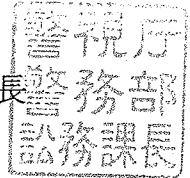 警視庁
長 警務部
訟務課長